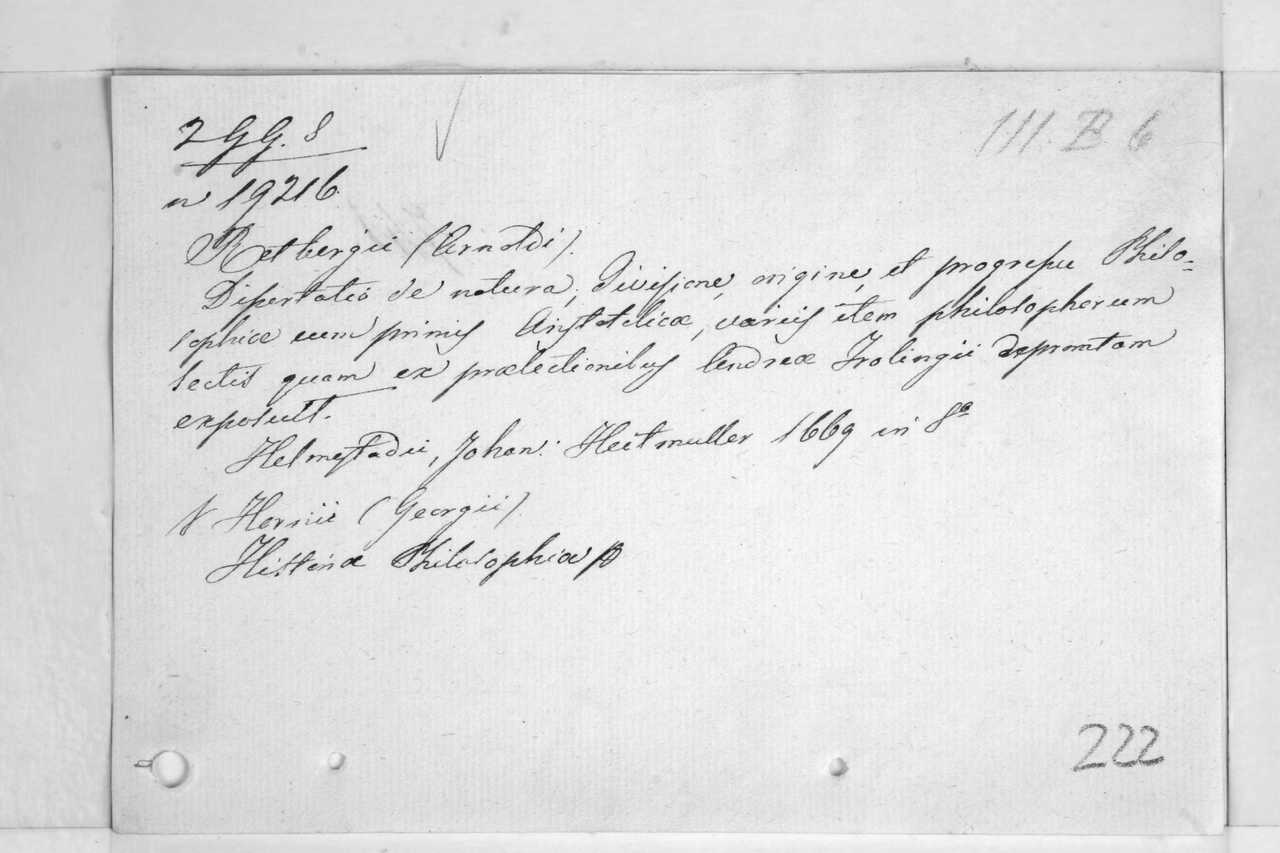 2 GG. 8
III. B 6
n 19216
Retbergii (Arnoldi).
Dissertatio de natura, divisione, origine, et progressu Philo=
sophiæ cum primis Aristotelicæ, variis item philosophorum
sectis quam ex prælectionibus Andreæ Frolingii depromtam
exposuit.
Helmestadii, Johan: Heitmuller 1669 in 8º
V Hornii (Georgii)
Historiæ Philosophiæ
222